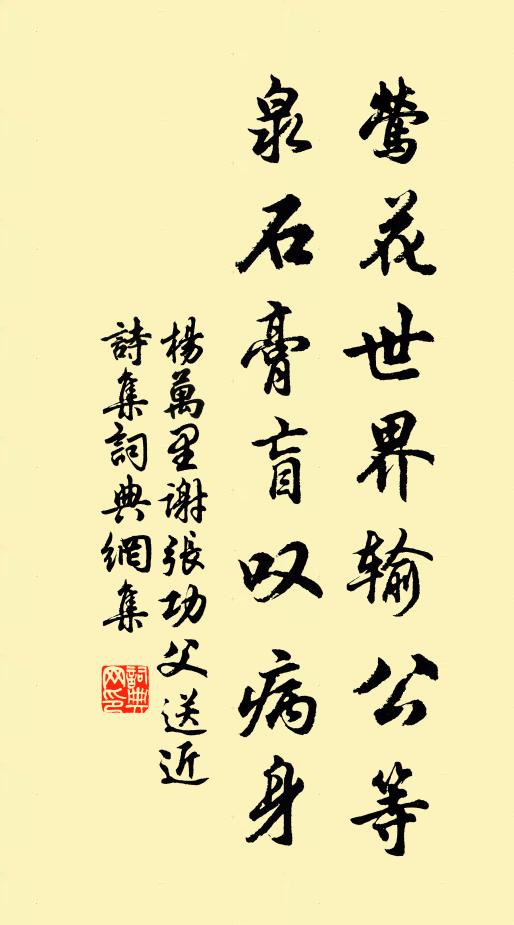 莺花世界输公等
泉石膏盲叹病身
楊萬里谢張功父送近
詩集詞典網集
詞典
网印